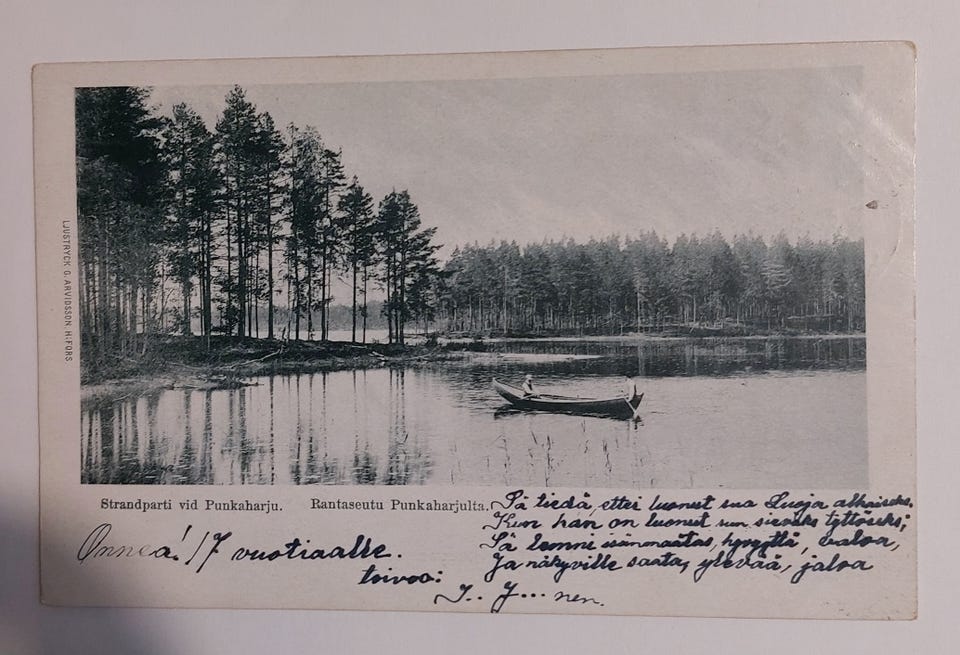 LJUSTRYCK G. ARVIDSSON. H:FORS
Strandparti vid Punkaharju. Rantaseutu Punkaharjulta.
Sä tiedä, ettei luonut sua Luoja
Kun hän on luonut sun tytöseks;
Sä lemmi isänmaatas, hyvyyttä, valoa,
Ja näkyville saata, ylevää, jaloa
Onnea! 17 vuotiaalle.
toivoo:
J.. J... nen.